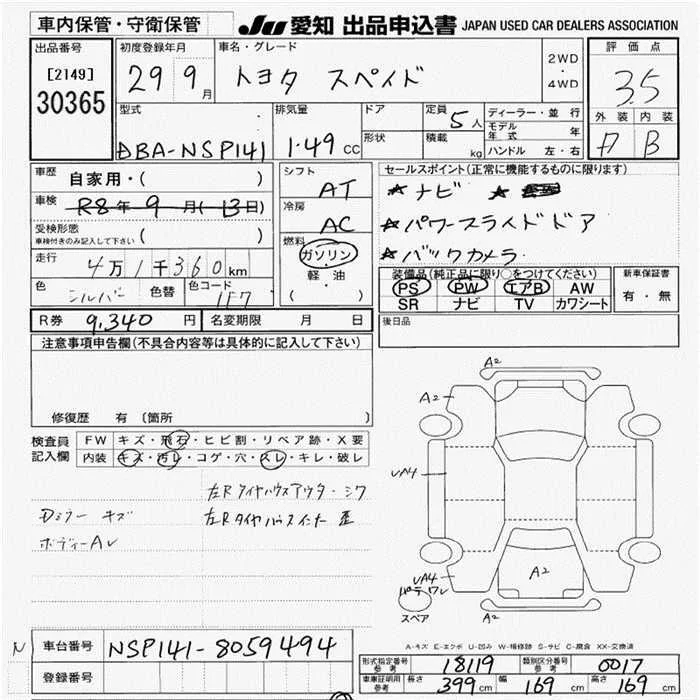 車内保管・守衛保管 JU 愛知 出品申込書 JAPAN USED CAR DEALERS ASSOCIATION
出品番号 [2149] 30365
初度登録年月 29 9月
車名・グレード トヨタ スペイド
2WD・4WD
評価点 3.5
外装 内装 B
型式 DBA-NSP141
排気量 1.49 cc
ドア 形状
定員 5人
積載 kg
ディーラー・並行
モデル年式 年
ハンドル 左・右
車歴 自家用・( )
車検 R8年 9月(13日)
受検形態 車検付きのみ記入して下さい ( )
走行 4万1千360km
色 シルバー 色替 色コード 1F7
シフト AT
冷房 AC
燃料 ガソリン・軽油 ( )
セールスポイント(正常に機能するものに限り)
★ナビ ★
★パワースライドドア
★バックカメラ.
装備品(純正品に限り○をつけてください)
PS PW エアB AW
SR ナビ TV カワシート
新車保証書 有・無
後日品
R券 9,340 円 名変期限 月 日
注意事項申告欄(不具合内容等は具体的に記入して下さい)
修復歴 有 〔箇所
検査員記入欄
FW キズ・飛石・ヒビ割・リペア跡・X要
内装 キズ・汚レ・コゲ・穴・スレ・キレ・破レ
左Rタイヤハウスアウター シワ
Dミラー キズ 左Rタイヤハウスインナー 歪
ボディーAレ
A2
A2
√A4
A2
√A4
スペア
A2
A-キズ E-エクボ U-凹み W-補修跡 S-サビ C-腐食 XX-交換済
N 車台番号 NSP141-8059494
登録番号
形式指定番号 参考 18119 類別区分番号 参考 0017
車庫証明用 参考 長さ 399cm 幅 169cm 高さ 169cm